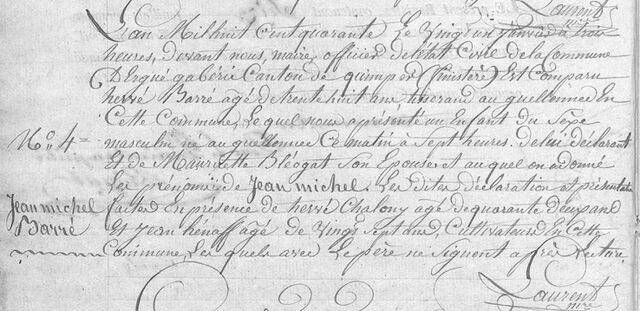 Laurent
mre
L'an Mil huit cent quarante Le Vingt un janvier à trois
heures, devant nous, maire, officier de l'état Civil de la Commune
D'Ergué gabéric Canton de quimper (finistère) Est Comparu
hervé Barré agé de trente huit ans, demeurant au quellennec En
Cette Commune, Lequel nous a présenté un Enfant du Sexe
No. 4 masculin né au quellennec Ce matin à Sept heures. de lui déclarant
Et de Mauricette Bléogat Son Epouse et auquel on a donné
Les prenoms de Jean michel. Les dites déclaration et présentation
Jean michel
Barré
faites En présence de hervé Chalony agé de quarante deux ans
Et Jean hénaff agé de Vingt Sept ans, Cultivateurs En Cette
Commune, Les quels avec Le père ne Signent après Lecture.
Laurent
mre